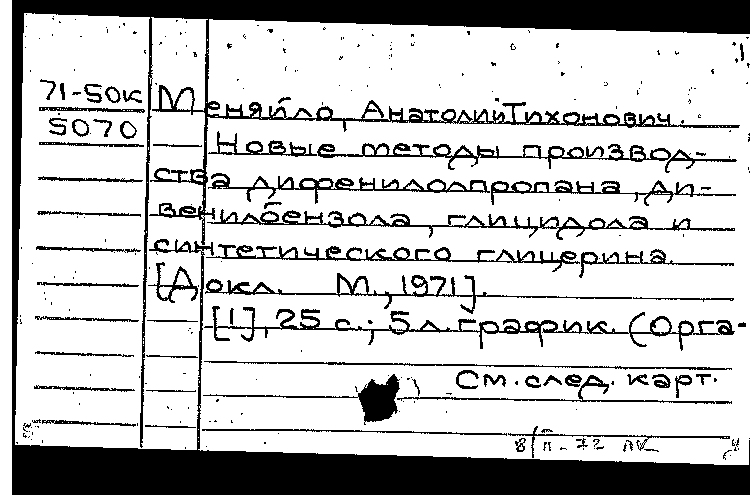 71-50к Меняйло, Анатолий Тихонович.
5070
Новые методы производ-
ства дифенилолпропана, ди-
венилбензола, глицидола и
синтетического глицерина.
[Докл. М., 1971].
[1], 25 с.; 5 л. график. (Орга-
См. след. карт.
8/п - 72 лк